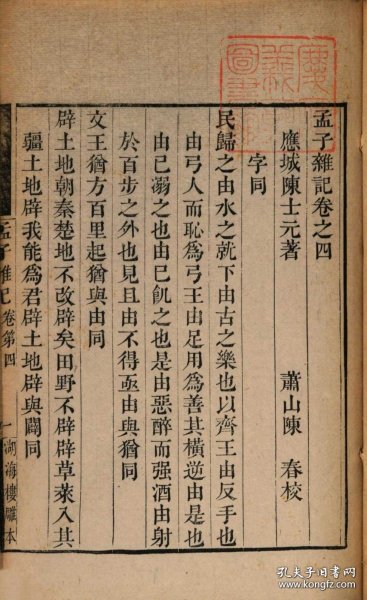 孟子雜記卷之四
應城陳士元著 蕭山陳 春校
字同
民歸之由水之就下由古之樂也以齊王由反手也
由弓人而恥爲弓王由足用爲善其橫逆由是也
由己溺之也由己飢之也是由惡醉而强酒由射
於百步之外也見且由不得亟由與猶同
文王猶方百里起猶與由同
辟土地朝秦楚地不改辟矣田野不辟辟草萊入其
疆土地辟我能爲君辟土地辟與闢同
孟子雜記 卷第四 一 湖海樓雕本
孔夫子旧书网
www.kongfz.com